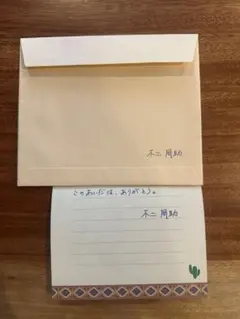 不二周助
このあいだは、ありがとう。
不二 周助